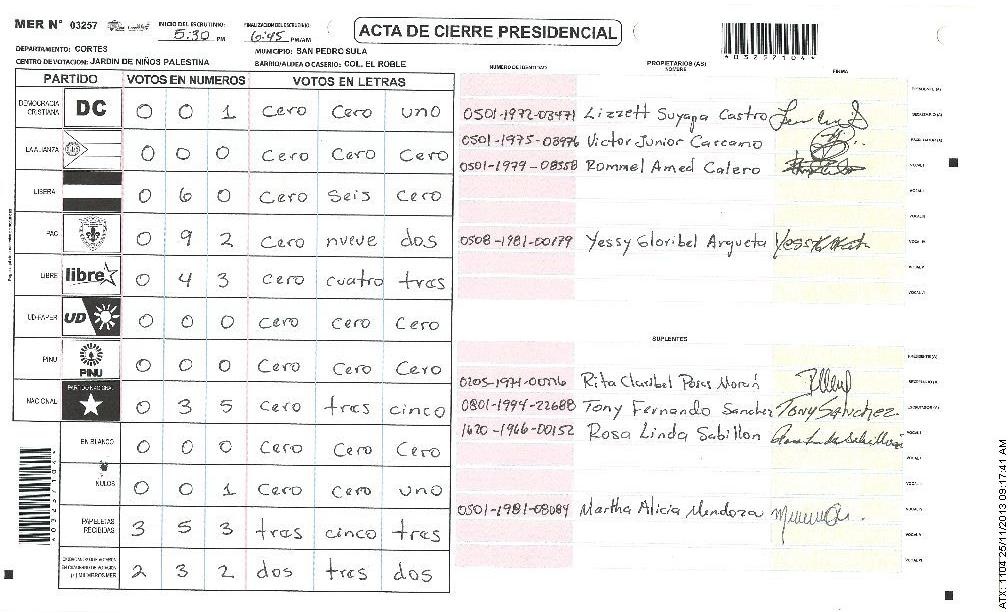 MER N° 03257
INICIO DEL ESCRUTINIO: 5:30 PM
FINALIZACION DEL ESCRUTINIO: 6:45 PM/AM
ACTA DE CIERRE PRESIDENCIAL
DEPARTAMENTO: CORTES
MUNICIPIO: SAN PEDRO SULA
CENTRO DE VOTACION: JARDIN DE NIÑOS PALESTINA
BARRIO/ALDEA O CASERIO: COL. EL ROBLE
PARTIDO VOTOS EN NUMEROS VOTOS EN LETRAS
NUMERO DE IDENTIDAD PROPIETARIOS (AS) NOMBRE FIRMA
DEMOCRACIA CRISTIANA DC 0 0 1 cero cero uno
LA ALIANZA 0 0 0 cero cero cero
LIBERA 0 6 0 cero seis cero
PAC 0 9 2 cero nueve dos
LIBRE libre 0 4 3 cero cuatro tres
UD-FAPER UD 0 0 0 cero cero cero
PINU PINU 0 0 0 cero cero cero
NACIONAL PARTIDO NACIONAL 0 3 5 cero tres cinco
EN BLANCO 0 0 0 cero cero cero
NULOS 0 0 1 cero cero uno
PAPELETAS RECIBIDAS 3 5 3 tres cinco tres
2 3 2 dos tres dos
0501-1972-03471 Lizzett Suyapa Castro
0501-1975-03976 Victor Junior Carcamo
0501-1979-08558 Rommel Amed Calero
0508-1981-00179 Yessy Gloribel Argueta
SUPLENTES
Rita Claribel Poses Morán
0801-1994-22688 Tony Fernando Sanchez Tony Sanchez
1620-1966-00152 Rosa Linda Sabillon
0501-1981-08084 Martha Alicia Mendoza
ATX: 1104 25/11/2013 09:17:41 AM